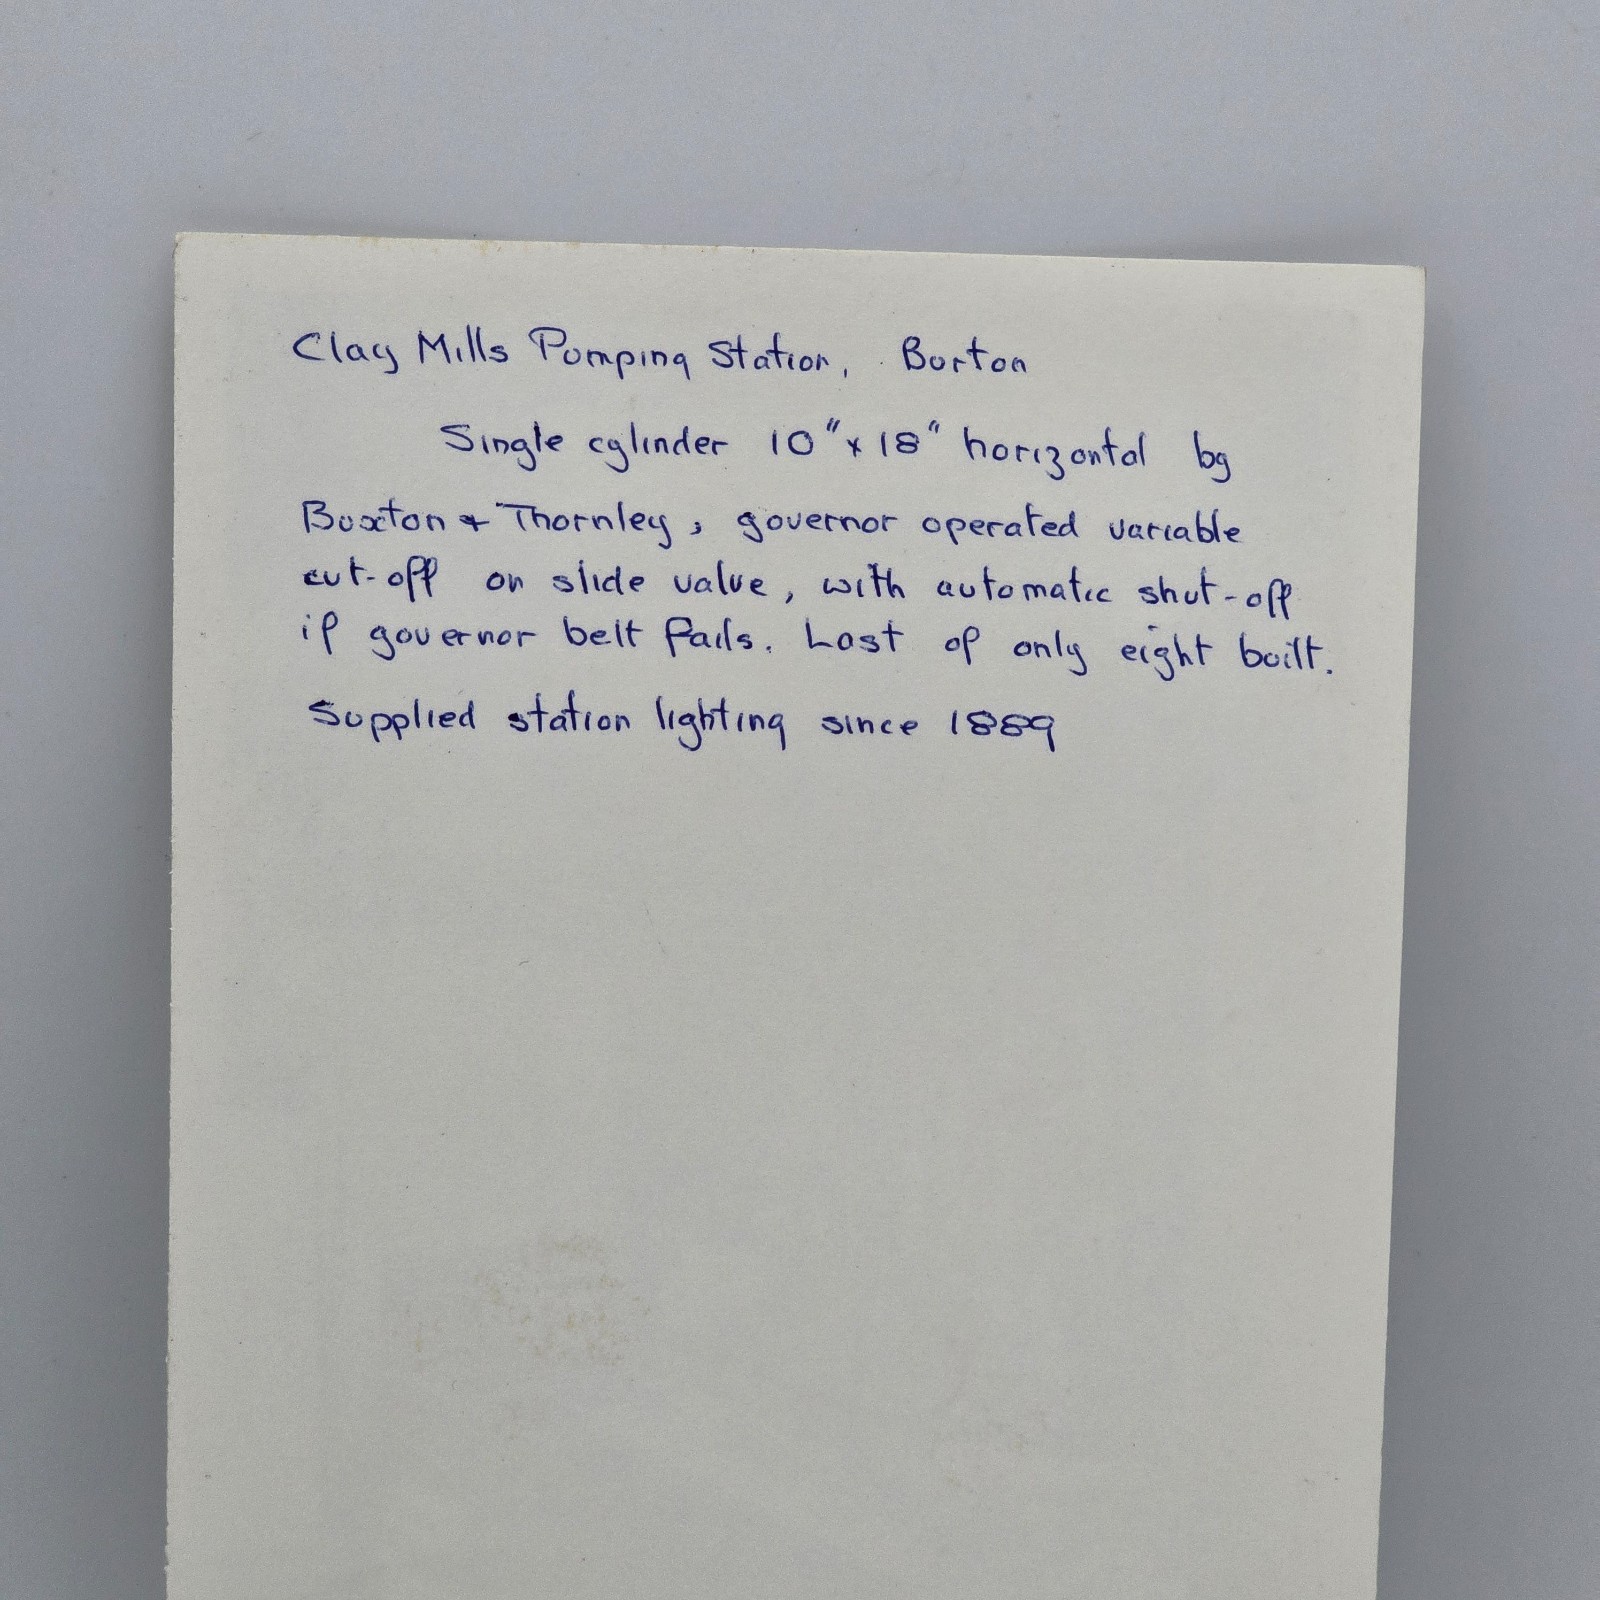 Clay Mills Pumping Station, Burton
Single cylinder 10" x 18" horizontal by
Buxton & Thornley, governor operated variable
cut-off on slide valve, with automatic shut-off
if governor belt fails. Last of only eight built.
Supplied station lighting since 1889